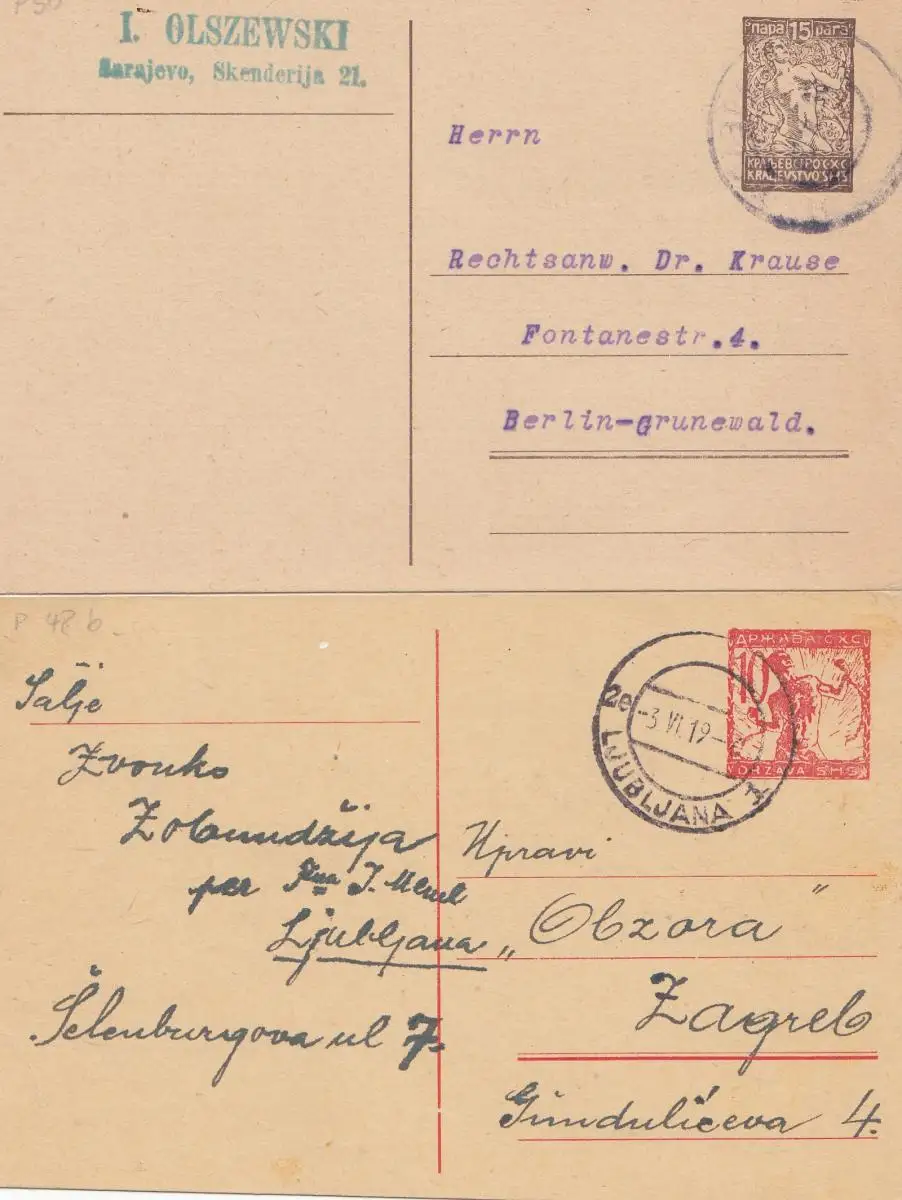 I. OLSZEWSKI
Sarajevo, Skenderija 21.
пара 15 para
КРАЉЕВСТВО СХС
KRALJEVSTVO SHS
Herrn
Rechtsanw. Dr. Krause
Fontanestr.4.
Berlin-Grunewald.
P 48 b
ДРЖАВА СХС
10
DRŽAVA SHS
2e
-3 VI 19-
LJUBLJANA 1
Šalje
Zvonko
per
Ljubljana
Šelenburgova ul 7.
Upravi
„Obzora"
Zagreb
Gundulićeva 4.